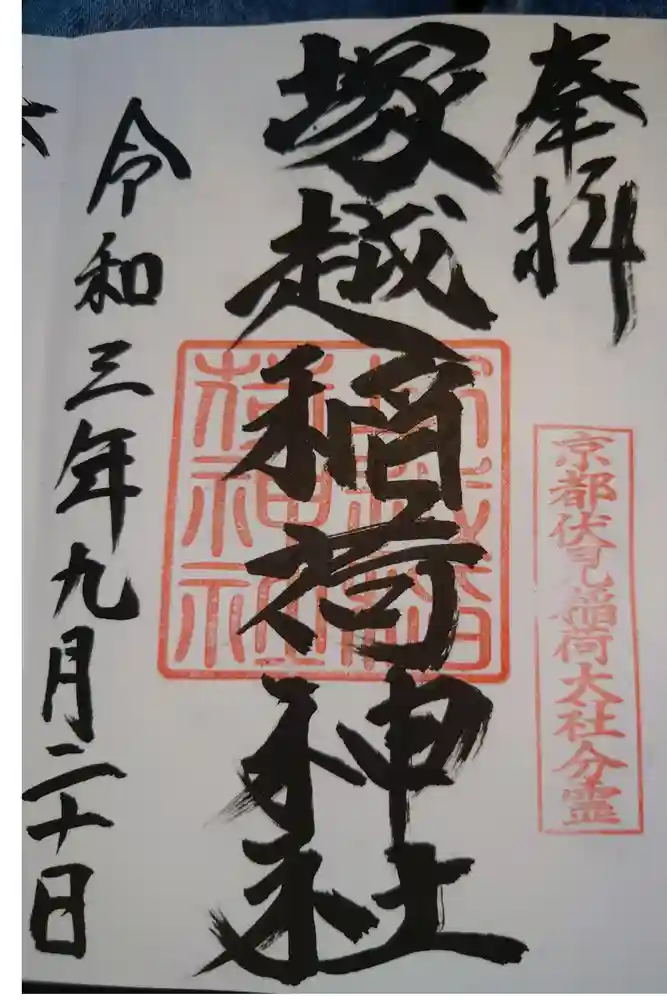 奉拝
京都伏見稲荷大社分霊
塚越稲荷神社
塚越稲
荷神社
令和三年九月二十日